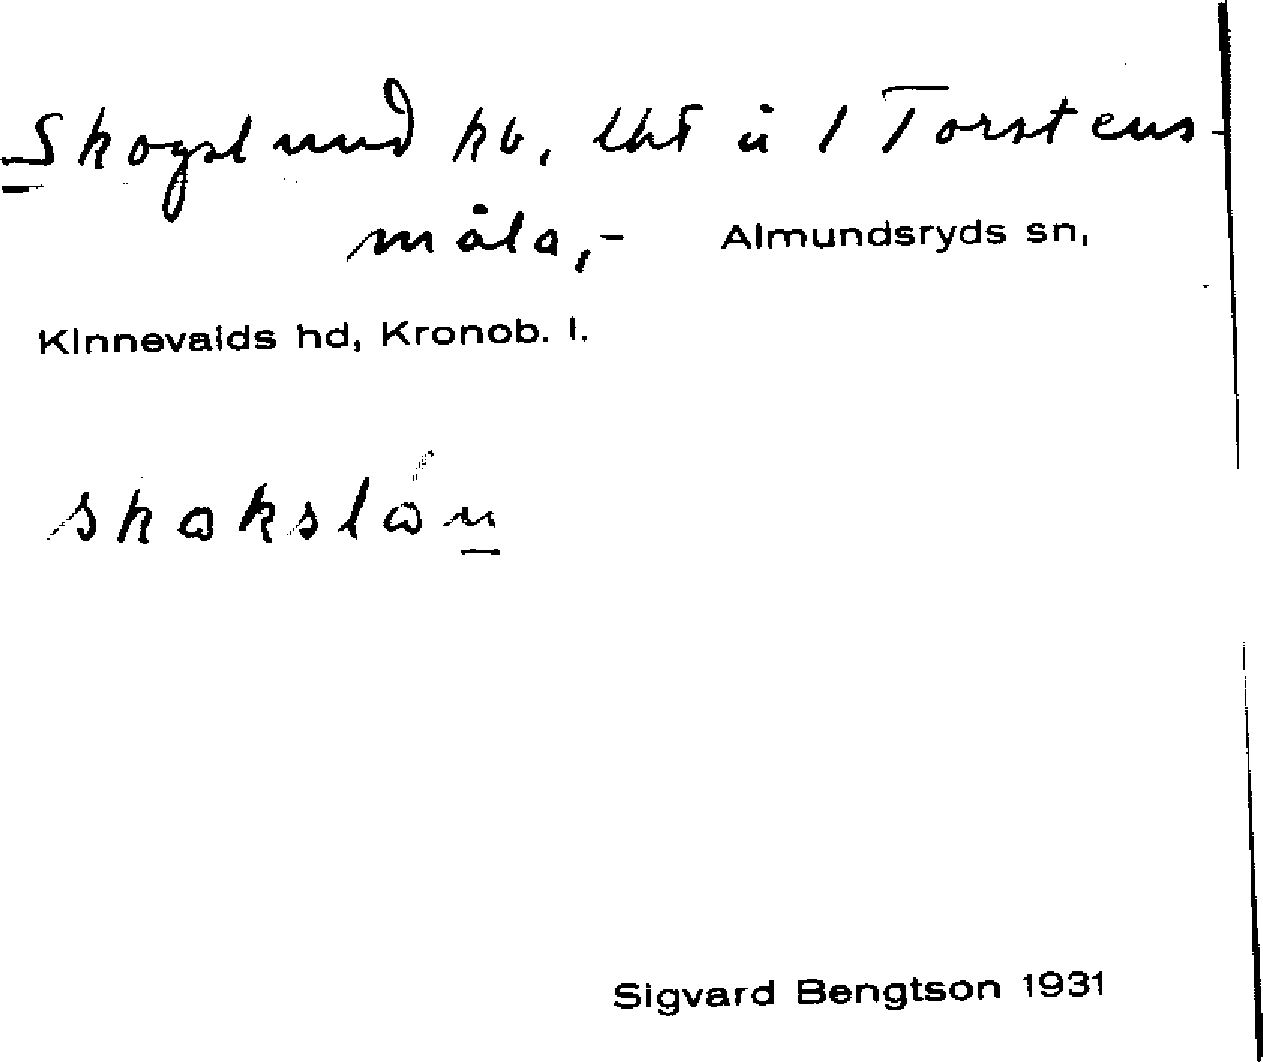 Skogslund hb. lht å 1 Torstens-
måla,- Almundsryds sn,
Kinnevalds hd, Kronob. l.
skakslán
Sigvard Bengtson 1931